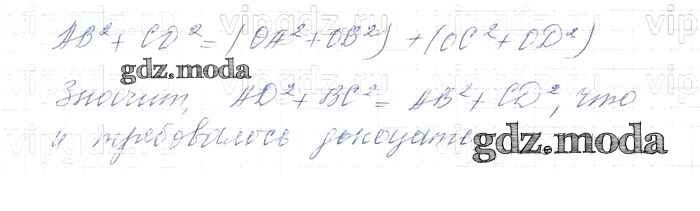 AB² + CD² = (OA² + OB²) + (OC² + OD²)
gdz.moda
Значит, AD² + BC² = AB² + CD², что
и требовалось доказать
gdz.moda